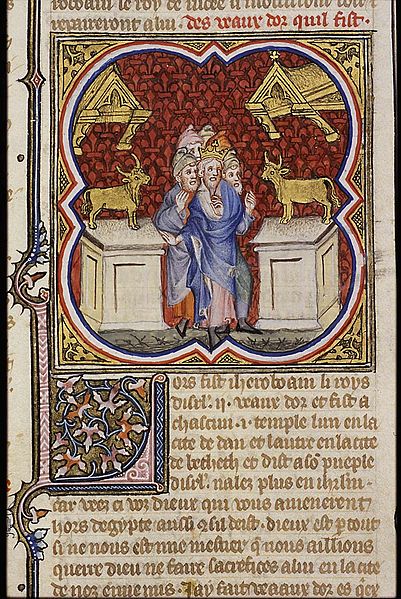 roboam le roy de iudee si
repaireront a lui. des veaux dor quil fist.
Lors fist iheroboam li roys
disrl. ii. veaux dor et fist a
chascun. i. temple lun en la
cite de dan et lautre en la cite
de betheth et dist a so pueple
disrl. nalez plus en iherusa
car veez ci voz dieux qui vous amenerent
hors degypte aussi sil deist. dieux est p tout
si ne nous est mie mestier q nous aillions
querre dieu ne faire sacrefices a lui en la cite
de noz ennemis. Jay fait veaux dor es qex